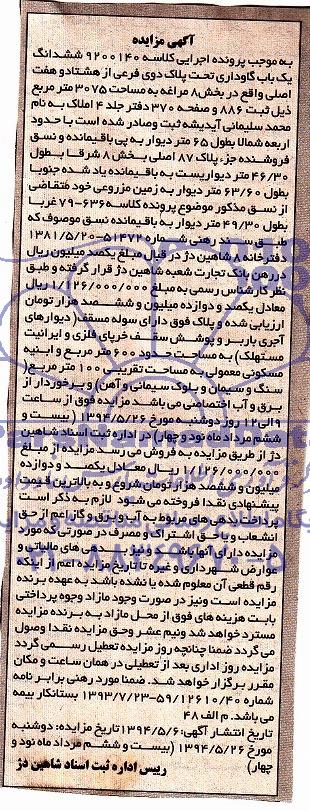 آگهی مزایده
به موجب پرونده اجرایی کلاسه ۹۲۰۰۱۴۰ ششدانگ
یک باب گاوداری تحت پلاک دوی فرعی از هشتاد و هفت
اصلی واقع در بخش ۸ مراغه به مساحت ۳۰۷۵ متر مربع
ذیل ثبت ۸۸۶ و صفحه ۳۷۰ دفتر جلد ۴ املاک به نام
محمد سلیمانی آیدیشه ثبت وصادر شده است با حدود
اربعه شمالا بطول ۶۵ متر دیوار به پی باقیمانده و نسق
فروشنده جزء پلاک ۸۷ اصلی بخش ۸ شرقا بطول
۴۶/۳۰ متر دیواریست به باقیمانده یاد شده جنوبا
بطول ۶۳/۶۰ متر دیوار به زمین مزروعی خود متقاضی
از نسق مذکور موضوع پرونده کلاسه ۶۳۶-۷۹ غربا
بطول ۴۹/۳۰ متر دیوار به باقیمانده نسق موصوف که
طبق سند رهنی شماره ۵۱۴۷۲-۱۳۸۱/۵/۲۰
دفترخانه ۸ شاهین دژ در قبال مبلغ یکصد میلیون ریال
در رهن بانک تجارت شعبه شاهین دژ قرار گرفته و طبق
نظر کارشناس رسمی به مبلغ ۱/۱۲۶/۰۰۰/۰۰۰ ریال
معادل یکصد و دوازده میلیون و ششصد هزار تومان
ارزیابی شده و پلاک فوق دارای سوله مسقف (دیوارهای
آجری باربر و پوشش سقف خرپای فلزی و ایرانیت
مستهلک) به مساحت حدود ۶۰۰ متر مربع و ابنیه
مسکونی معمولی به مساحت تقریبی ۱۰۰ متر مربع (
سنگ و سیمان و بلوک سیمانی و آهن) و برخوردار از
برق و آب اختصاصی می باشد مزایده فوق از ساعت
۹ الی ۱۲ روز دوشنبه مورخ ۱۳۹۴/۵/۲۶ ( بیست و
ششم مرداد ماه نود و چهار) در اداره ثبت اسناد شاهین
دژ از طریق مزایده به فروش می رسد مزایده از مبلغ
۱/۱۲۶/۰۰۰/۰۰۰ ریال معادل یکصد و دوازده
میلیون و ششصد هزار تومان شروع و به بالاترین قیمت
پیشنهادی نقدا فروخته می شود لازم به ذکر است
پرداخت بدهی های مربوط به آب و برق و گاز اعم از حق
انشعاب و یا حق اشتراک و مصرف در صورتی که مورد
مزایده دارای آنها باشد و نیز بدهی های مالیاتی و
عوارض شهرداری و غیره تا تاریخ مزایده اعم از اینکه
رقم قطعی آن معلوم شده یا نشده باشد به عهده برنده
مزایده است ونیز در صورت وجود مازاد وجوه پرداختی
بابت هزینه های فوق از محل مازاد به برنده مزایده
مسترد خواهد شد ونیم عشر وحق مزایده نقدا وصول
می گردد ضمنا چنانچه روز مزایده تعطیل رسمی گردد
مزایده روز اداری بعد از تعطیلی در همان ساعت و مکان
مقرر برگزار خواهد شد. ضمنا مورد رهنی برابر نامه
شماره ۵۹/۱۲۶۱۰/۴۰-۱۳۹۳/۷/۲۳ بستانکار بیمه
می باشد. م الف ۴۸
تاریخ انتشار آگهی: ۱۳۹۴/۵/۶ تاریخ مزایده: دوشنبه
مورخ ۱۳۹۴/۵/۲۶ (بیست و ششم مرداد ماه نود و
چهار)
رییس اداره ثبت اسناد شاهین دژ